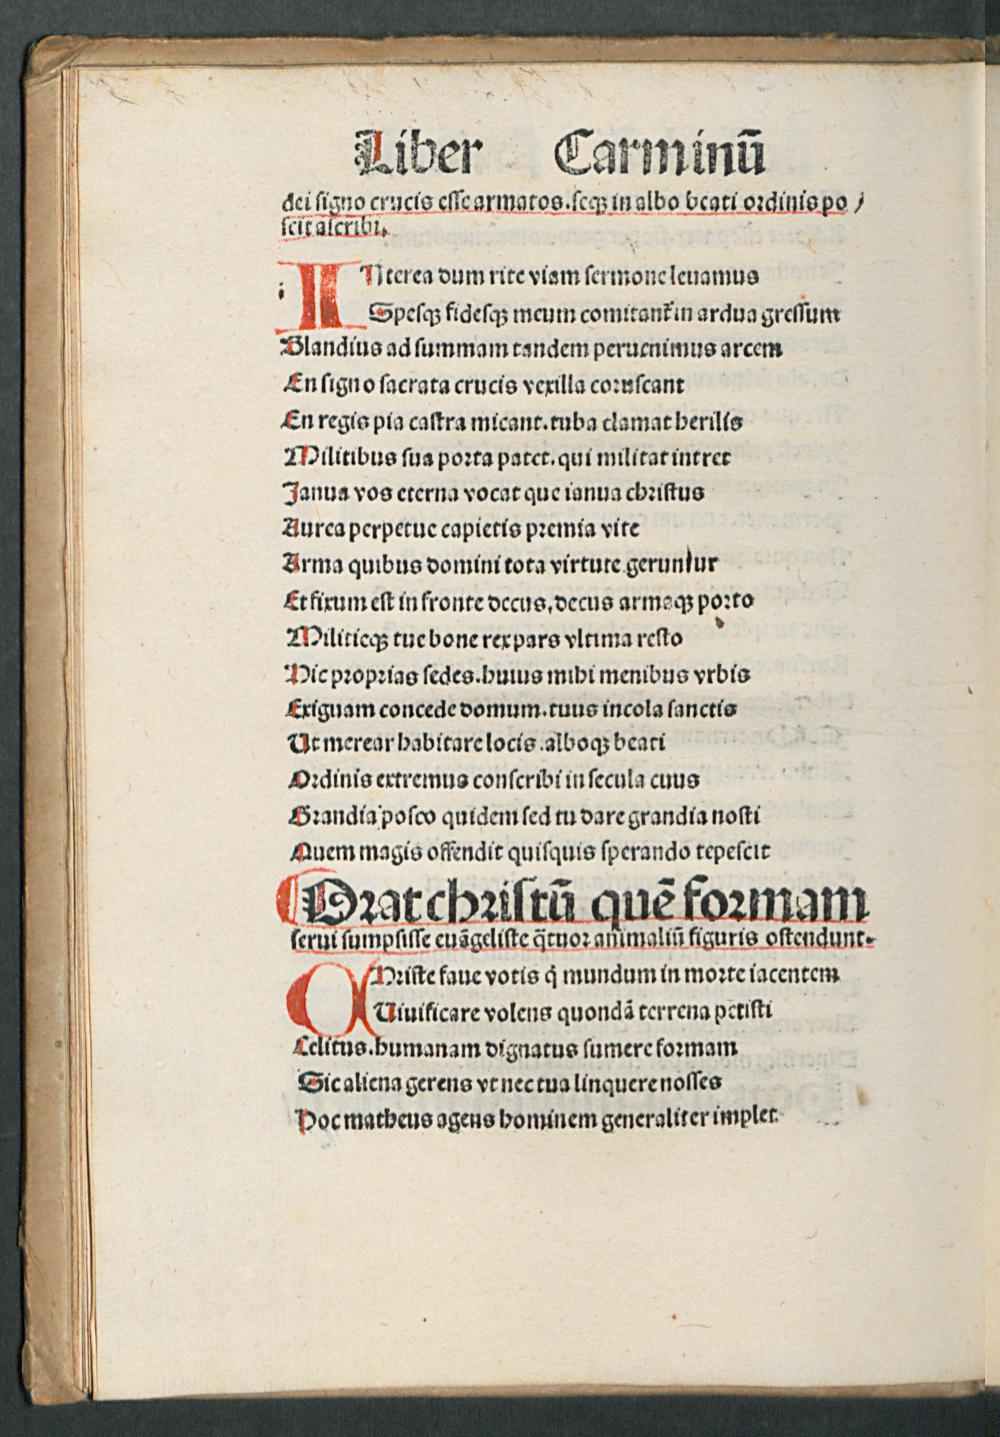 Liber Carminū
dei signo crucis esse armatos.seq̨ in albo beati ordinis po/
scit ascribi.
INterea dum rite viam sermone leuamus
Spesq̨ fidesq̨ meum comitant᷑ in ardua gressum
Blandius ad summam tandem peruenimus arcem
En signo sacrata crucis vexilla coruscant
En regis pia castra micant.tuba clamat herilis
Militibus sua porta patet.qui militat intret
Janua vos eterna vocat que ianua christus
Aurea perpetue capietis premia vite
Arma quibus domini tota virtute geruntur
Et fixum est in fronte decus,decus armaq̨ porto
Militieq̨ tue bone rex pars vltima resto
Hic proprias sedes.huius mihi menibus vrbis
Exiguam concede domum.tuus incola sanctis
Ut merear habitare locis.alboq̨ beati
Ordinis extremus conscribi in secula cuus
Grandia posco quidem sed tu dare grandia nosti
Quem magis offendit quisquis sperando tepescit
Orat christū quē formam
serui sumpsisse euāgeliste q̄tuor animaliū figuris ostendunt.
CHriste faue votis q̇ mundum in morte iacentem
Uiuificare volens quondā terrena petisti
Celitus.humanam dignatus sumere formam
Sic aliena gerens vt nec tua linquere nosses
Hoc matheus agens hominem generaliter implet